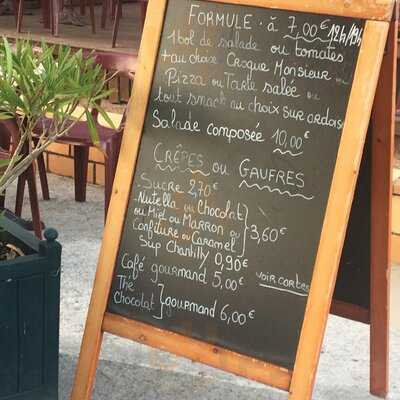 Formule - à 7,00€ 12h/19h
1 bol de salade ou tomates
+ au choix Croque Monsieur ou
Pizza ou Tarte salée ou
tout snack au choix sur ardoise
Salade composée 10,00€
CRÊPES ou GAUFRES
- Sucre 2,70€
- Nutella ou Chocolat
ou Miel ou Marron ou
Confiture ou Caramel } 3,60€
Sup Chantilly 0,90€
Café gourmand 5,00€ voir cartes
The
Chocolat } gourmand 6,00€